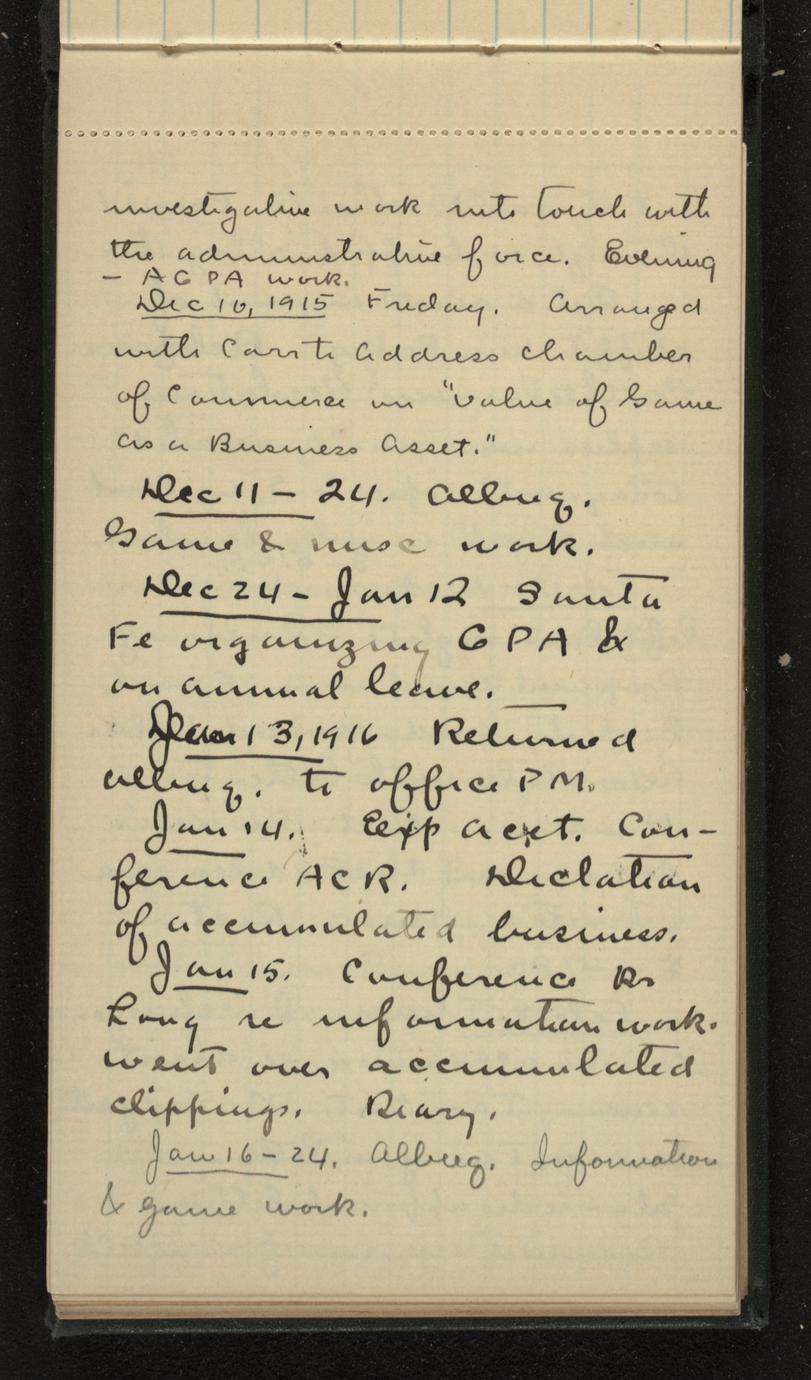 investigative work into touch with
the administrative force. Evening
- AGPA work.
Dec 10, 1915 Friday. Arranged
with Carr to address chamber
of Commerce on "Value of Game
as a Business Asset."
Dec 11 - 24. Albuq.
Game & misc work.
Dec 24 - Jan 12 Santa
Fe organizing GPA &
on annual leave.
Jan 13, 1916 Returned
Albuq. to office PM.
Jan 14. Exp acct. Con-
ference ACR. Dictation
of accumulated business.
Jan 15. Conference
Long re information work.
went over accumulated
clippings. Diary.
Jan 16 - 24. Albuq. Information
& game work.